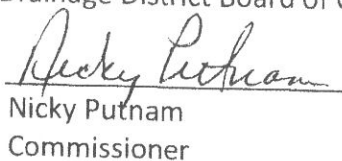 Drainage District Board of
Nicky Putnam
Nicky Putnam
Commissioner